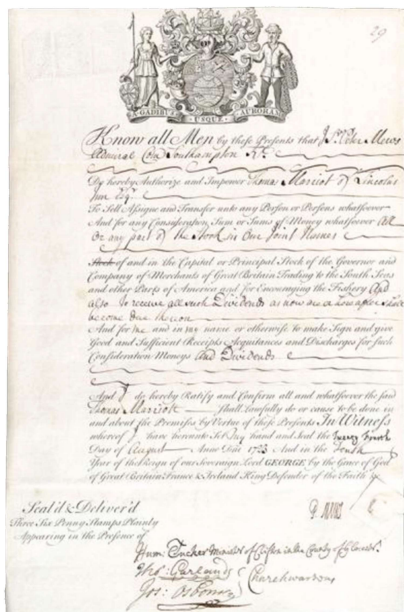 29
A GADIBUS USQUE AURORAM
Know all Men by these Presents that I Sr. Peter Mews
Southampton Kt.
Do hereby Authorize and Impower Thomas Marriot of Lincolns
Inn Esqr.
To Sell Assigne and Transfer unto any Person or Persons whatsoever
And for any Consideration Sum or Sums of Money whatsoever All
Or any part of the Stock in Our Joint Names
Stock of and in the Capital or Principal Stock of the Governor and
Company of Merchants of Great Britain Trading to the South Seas
and other Parts of America and for Encouraging the Fishery And
also to receive all such Dividends as now are or hereafter shall
become due thereon
And for me and in my name or otherwise to make Sign and give
Good and Sufficient Receipts Acquitances and Discharges for such
Consideration Moneys And Dividends
And I do hereby Ratify and Confirm all and whatsoever the said
Thomas Marriott Shall lawfully do or cause to be done in
and about the Premises by Virtue of these Presents In Witness
whereof I have hereunto Set my hand and Seal the
Day of August Anno Dñi 1723 And in the Tenth
Year of the Reign of our Sovereign Lord GEORGE by the Grace of God
of Great Britain France & Ireland King Defender of the Faith &c.
Seal'd & Deliver'd
Three Six Penny Stamps Plainly
Appearing in the Presence of
P. Mews
Hum: Tucker Minister of in the County of
Garland Churchwardens
Jos: Osborne